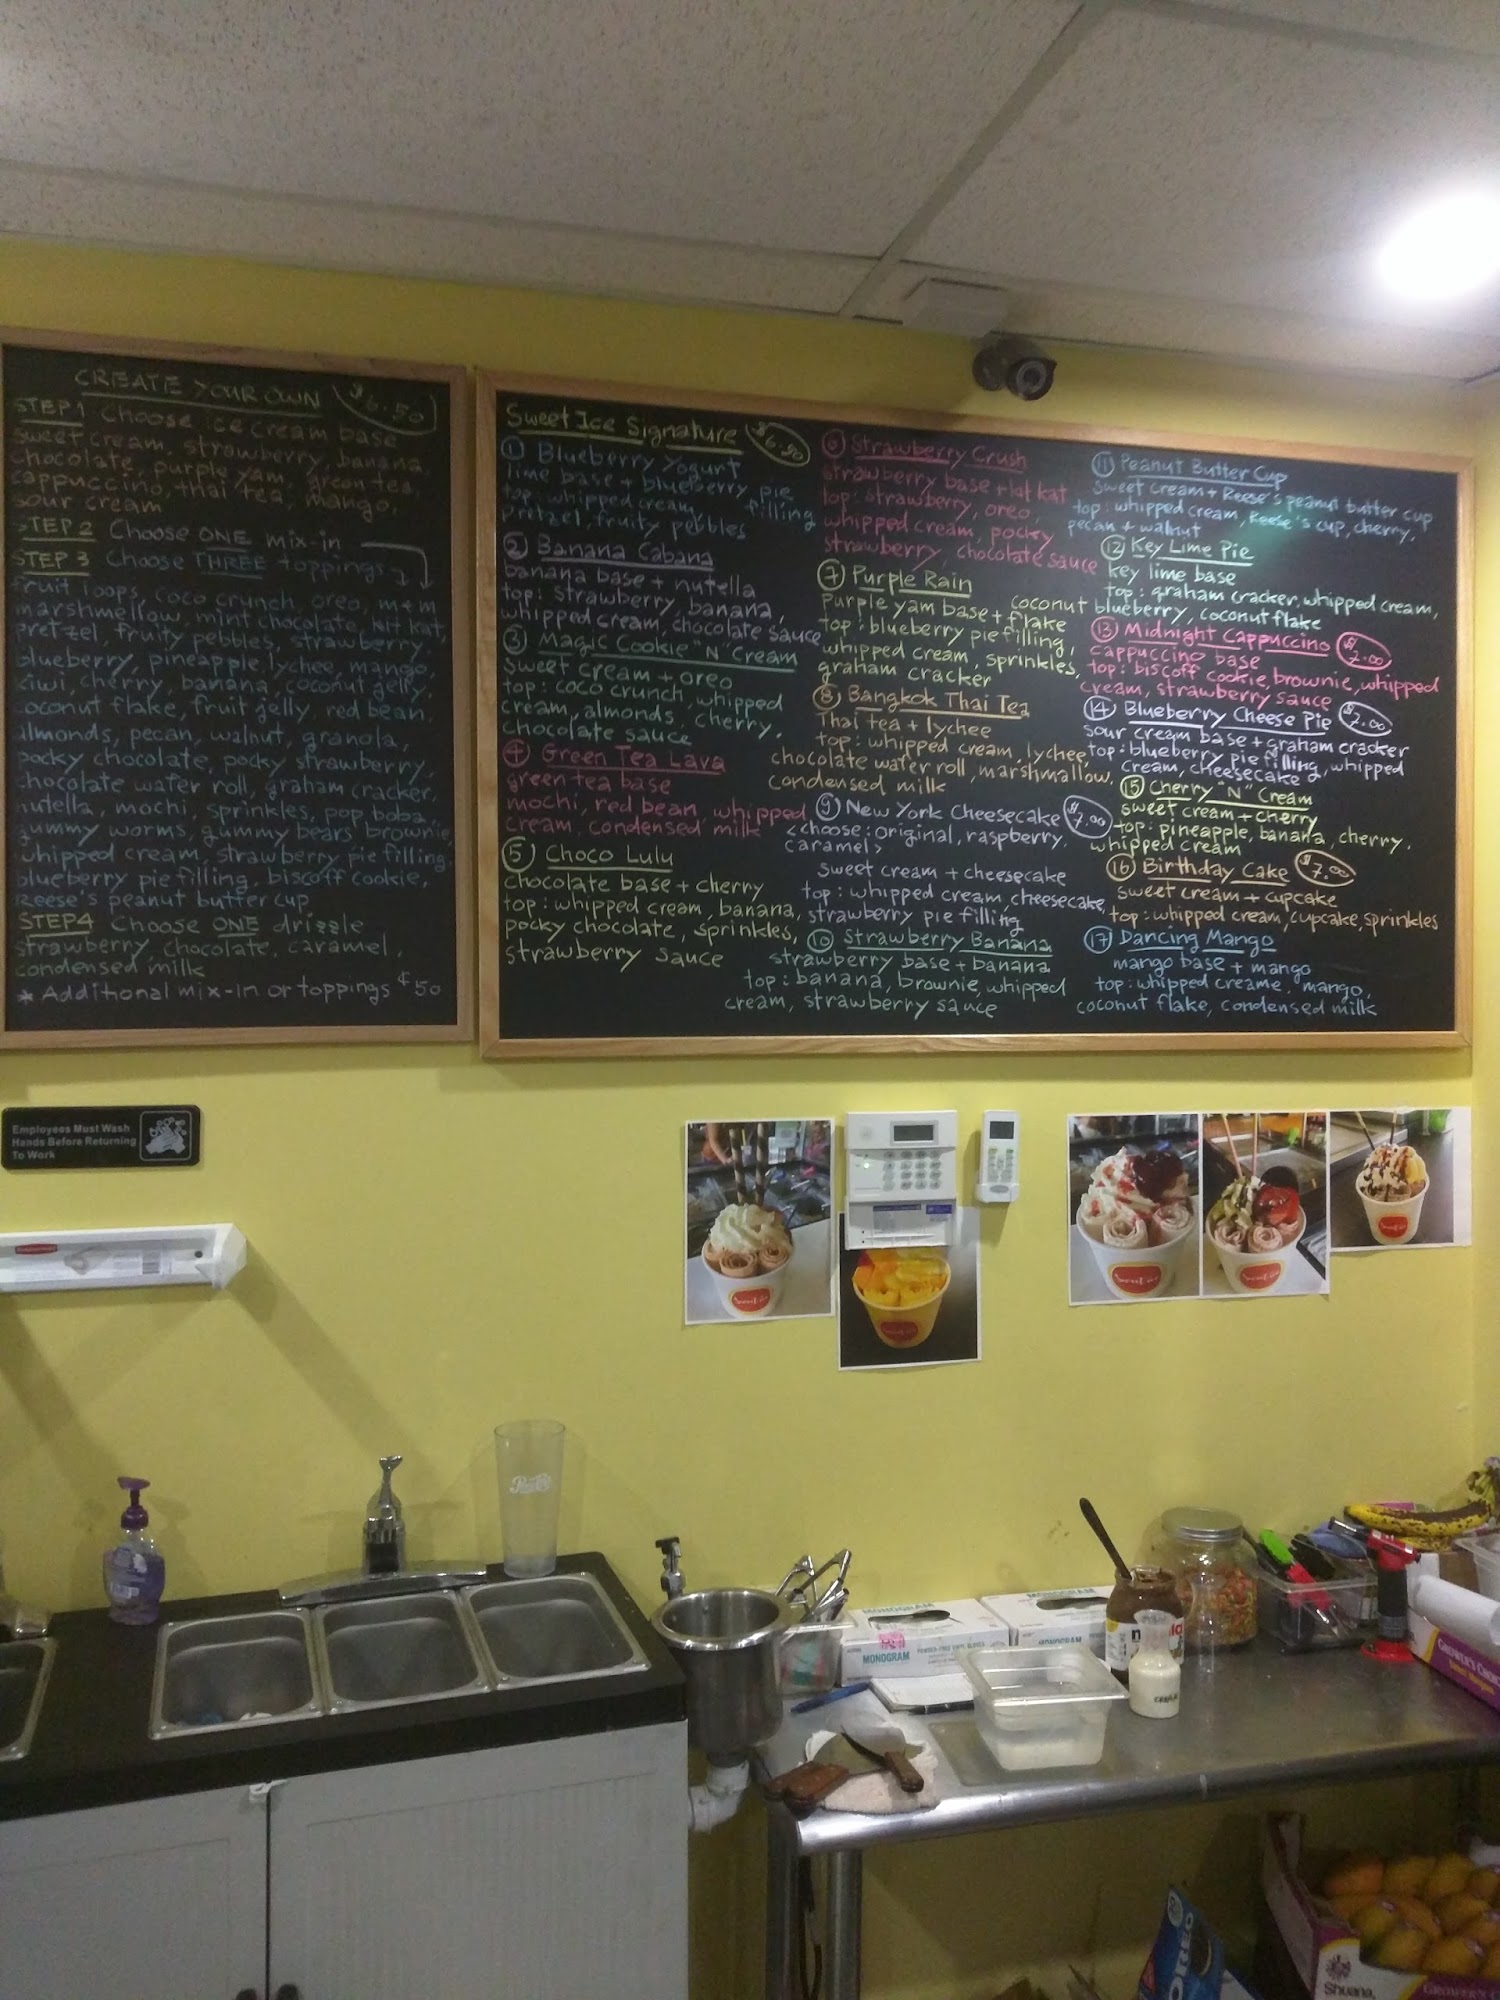 CREATE YOUR OWN $6.50
STEP1 Choose ice cream base
sweet cream, strawberry, banana,
chocolate, purple yam, green tea,
cappuccino, thai tea, mango,
sour cream
STEP 2 Choose ONE mix-in
STEP 3 Choose THREE toppings
fruit loops, coco crunch, oreo, m&m
marshmellow, mint chocolate, kit kat,
pretzel, fruity pebbles, strawberry,
blueberry, pineapple, lychee, mango,
kiwi, cherry, banana, coconut jelly,
coconut flake, fruit jelly, red bean,
almonds, pecan, walnut, granola,
pocky chocolate, pocky strawberry,
chocolate wafer roll, graham cracker,
nutella, mochi, sprinkles, pop boba,
gummy worms, gummy bears, brownie,
whipped cream, strawberry pie filling,
blueberry pie filling, biscoff cookie,
Reese's peanut butter cup
STEP4 Choose ONE drizzle
strawberry, chocolate, caramel,
condensed milk
* Additional mix-in or toppings $.50
Sweet Ice Signature $6.50
① Blueberry Yogurt
lime base + blueberry pie
filling
top: whipped cream,
pretzel, fruity pebbles
② Banana Cabana
banana base + nutella
top: strawberry, banana,
whipped cream, chocolate sauce
③ Magic Cookie "N" Cream
sweet cream + oreo
top: coco crunch, whipped
cream, almonds, cherry,
chocolate sauce
④ Green Tea Lava
green tea base
mochi, red bean, whipped
cream, condensed milk
⑤ Choco Lulu
chocolate base + cherry
top: whipped cream, banana,
pocky chocolate, sprinkles,
strawberry sauce
⑥ Strawberry Crush
strawberry base + kit kat
top: strawberry, oreo,
whipped cream, pocky
strawberry, chocolate sauce
⑦ Purple Rain
purple yam base + coconut
flake
top: blueberry pie filling,
whipped cream, sprinkles,
graham cracker
⑧ Bangkok Thai Tea
Thai tea + lychee
top: whipped cream, lychee,
chocolate wafer roll, marshmallow,
condensed milk
⑨ New York Cheesecake $7.00
<choose: original, raspberry,
caramel>
sweet cream + cheesecake
top: whipped cream, cheesecake,
strawberry pie filling
⑩ Strawberry Banana
strawberry base + banana
top: banana, brownie, whipped
cream, strawberry sauce
⑪ Peanut Butter Cup
sweet cream + Reese's peanut butter cup
top: whipped cream, Reese's cup, cherry,
pecan + walnut
⑫ Key Lime Pie
key lime base
top: graham cracker, whipped cream,
blueberry, coconut flake
⑬ Midnight Cappuccino $7.00
cappuccino base
top: biscoff cookie, brownie, whipped
cream, strawberry sauce
⑭ Blueberry Cheese Pie $7.00
sour cream base + graham cracker
top: blueberry pie filling, whipped
cream, cheesecake
⑮ Cherry "N" Cream
sweet cream + cherry
top: pineapple, banana, cherry,
whipped cream
⑯ Birthday Cake $7.00
sweet cream + cupcake
top: whipped cream, cupcake, sprinkles
⑰ Dancing Mango
mango base + mango
top: whipped creame, mango,
coconut flake, condensed milk
Employees Must Wash
Hands Before Returning
To Work
MONOGRAM
MONOGRAM
MONOGRAM
MONOGRAM
OREO
Shuana